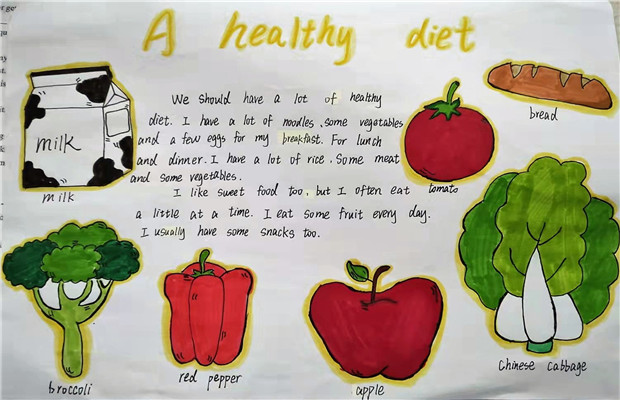 A healthy diet
We should have a lot of healthy
diet. I have a lot of noodles .some vegatables
and a few eggs for my breakfast. For lunch
and dinner. I have a lot of rice. Some meat
and some vegetables.
I like sweet food too. but I often eat
a little at a time. I eat some fruit every day.
I usually have some snacks too.
milk
milk
bread
tomato
broccoli
red pepper
apple
Chinese cabbage